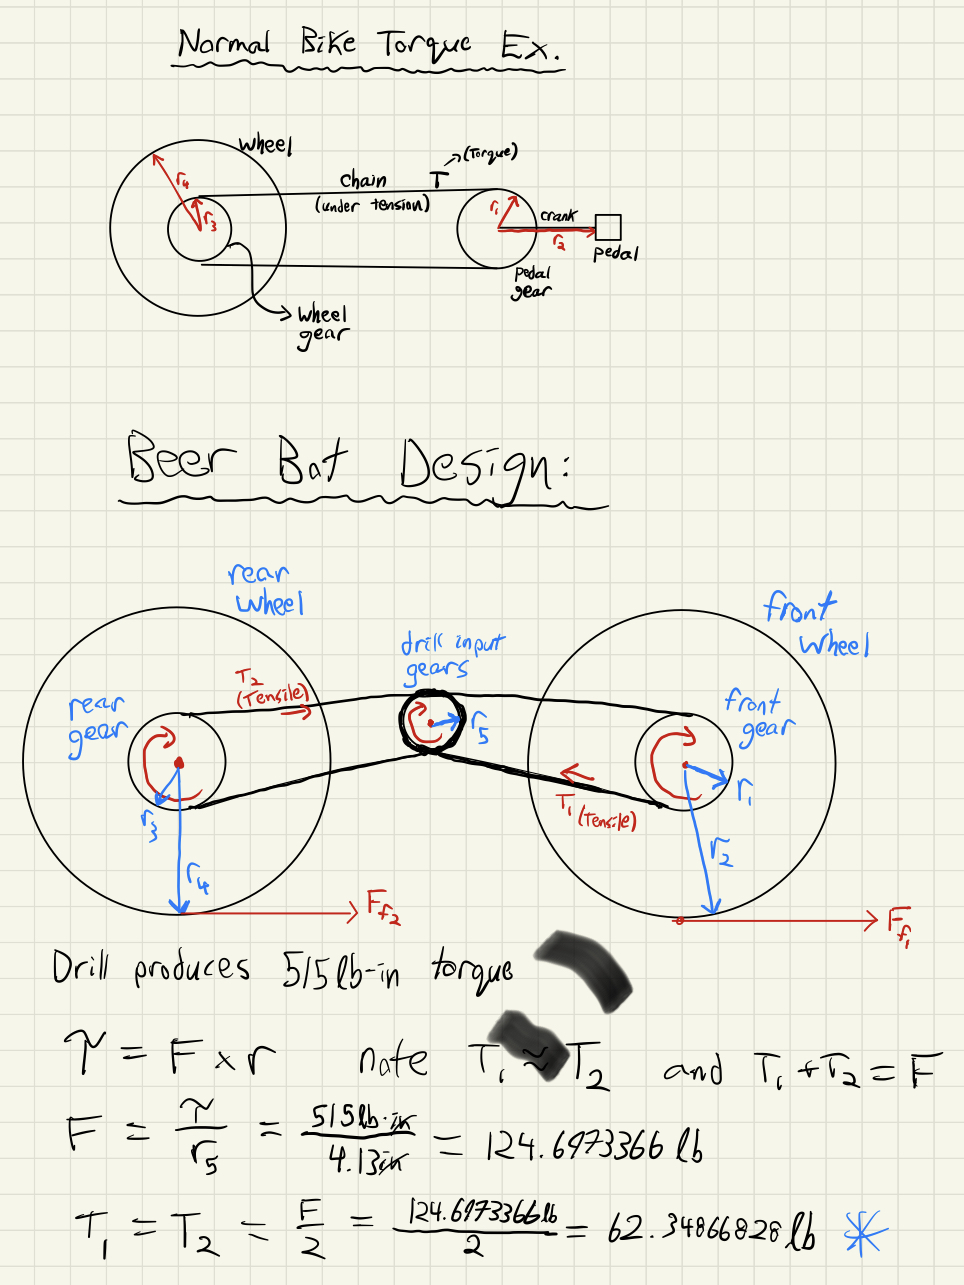 Normal Bike Torque Ex.
wheel
(Torque)
Chain T
(under tension)
r4
r3
r1
crank
r2
pedal
pedal
gear
wheel
gear
Beer Bat Design:
rear
wheel
front
wheel
drill input
gears
T2
(Tensile)
rear
gear
front
gear
r5
r1
T1 (Tensile)
r3
r2
r4
Ff2
Ff1
Drill produces 515 lb-in torque
τ = F × r note T1 ≈ T2 and T1 + T2 = F
F = τ/r5 = 515 lb·in/4.13in = 124.6973366 lb
T1 = T2 = F/2 = 124.6973366 lb/2 = 62.34866828 lb *